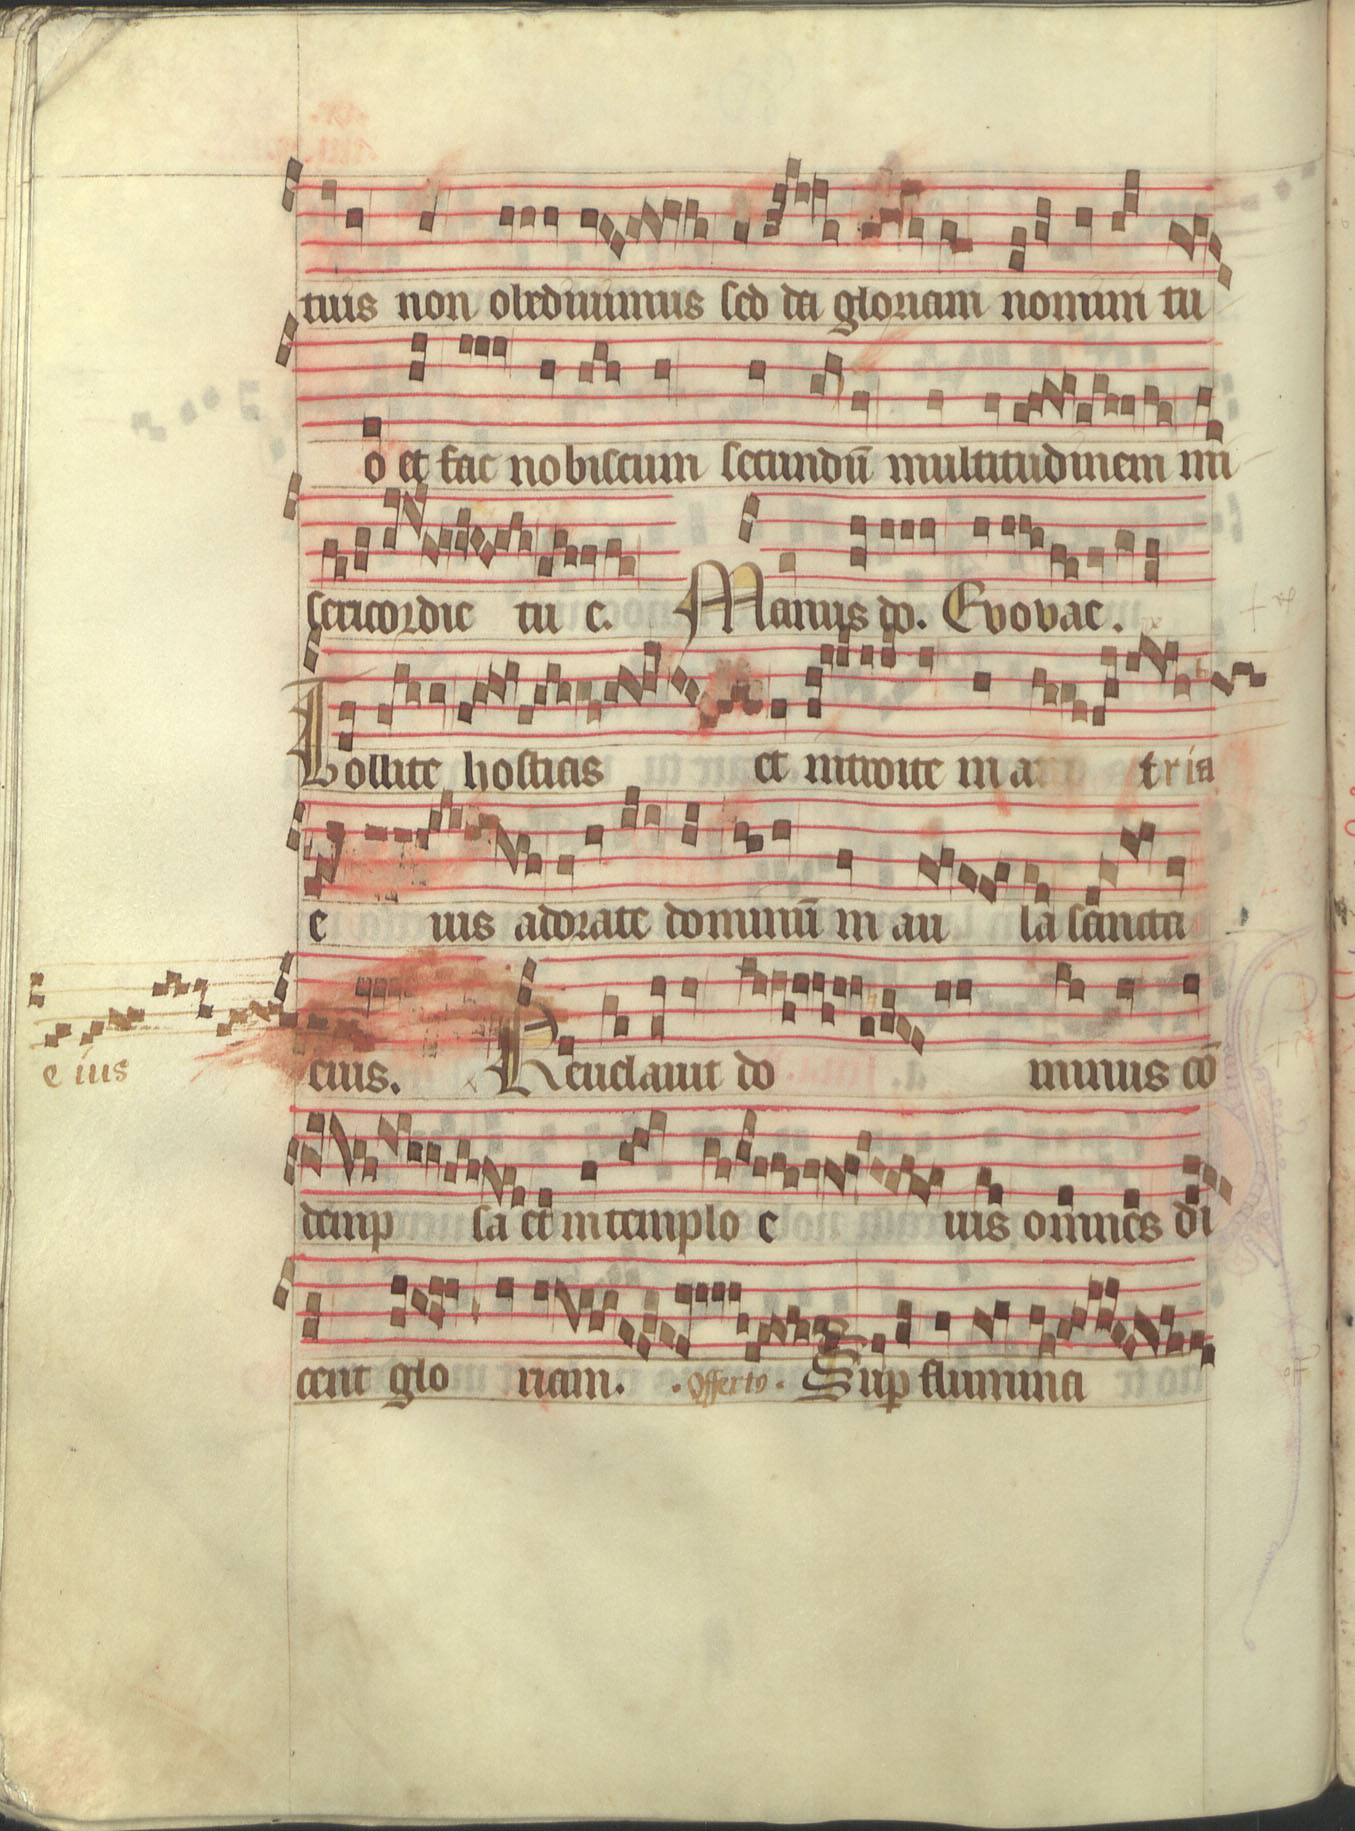 tuis non obediuimus sed da gloriam nomini tu
o et fac nobiscum secundū multitudinem mi
sericordie tu e. Manus do. Evovae.
Tollite hostias et introite in a tria
e ius adorate dominū in au la sancta
e ius
eius. Reuelauit do minus cō
densa et in templo e ius omnes di
cent glo riam. Offerto. Sup flumina